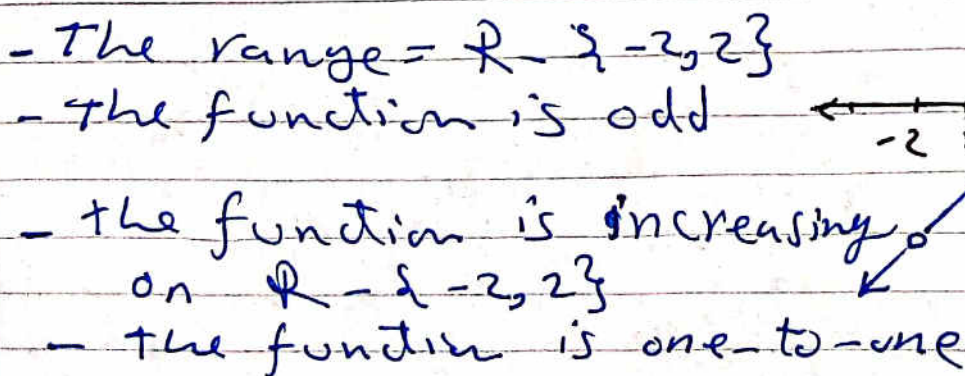 - The range = R - {-2, 2}
- the function is odd
-2
- the function is increasing
on R - {-2, 2}
- the function is one-to-one